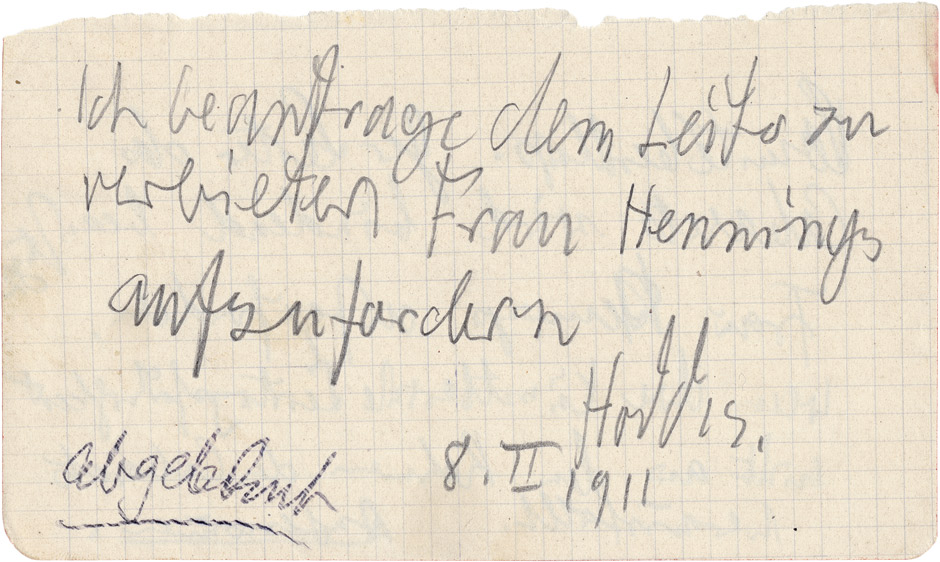 Ich beantrage dem Leifo zu
verbieten Frau Hennings
aufzufordern
Hoddis.
8. II 1911
abgelehnt